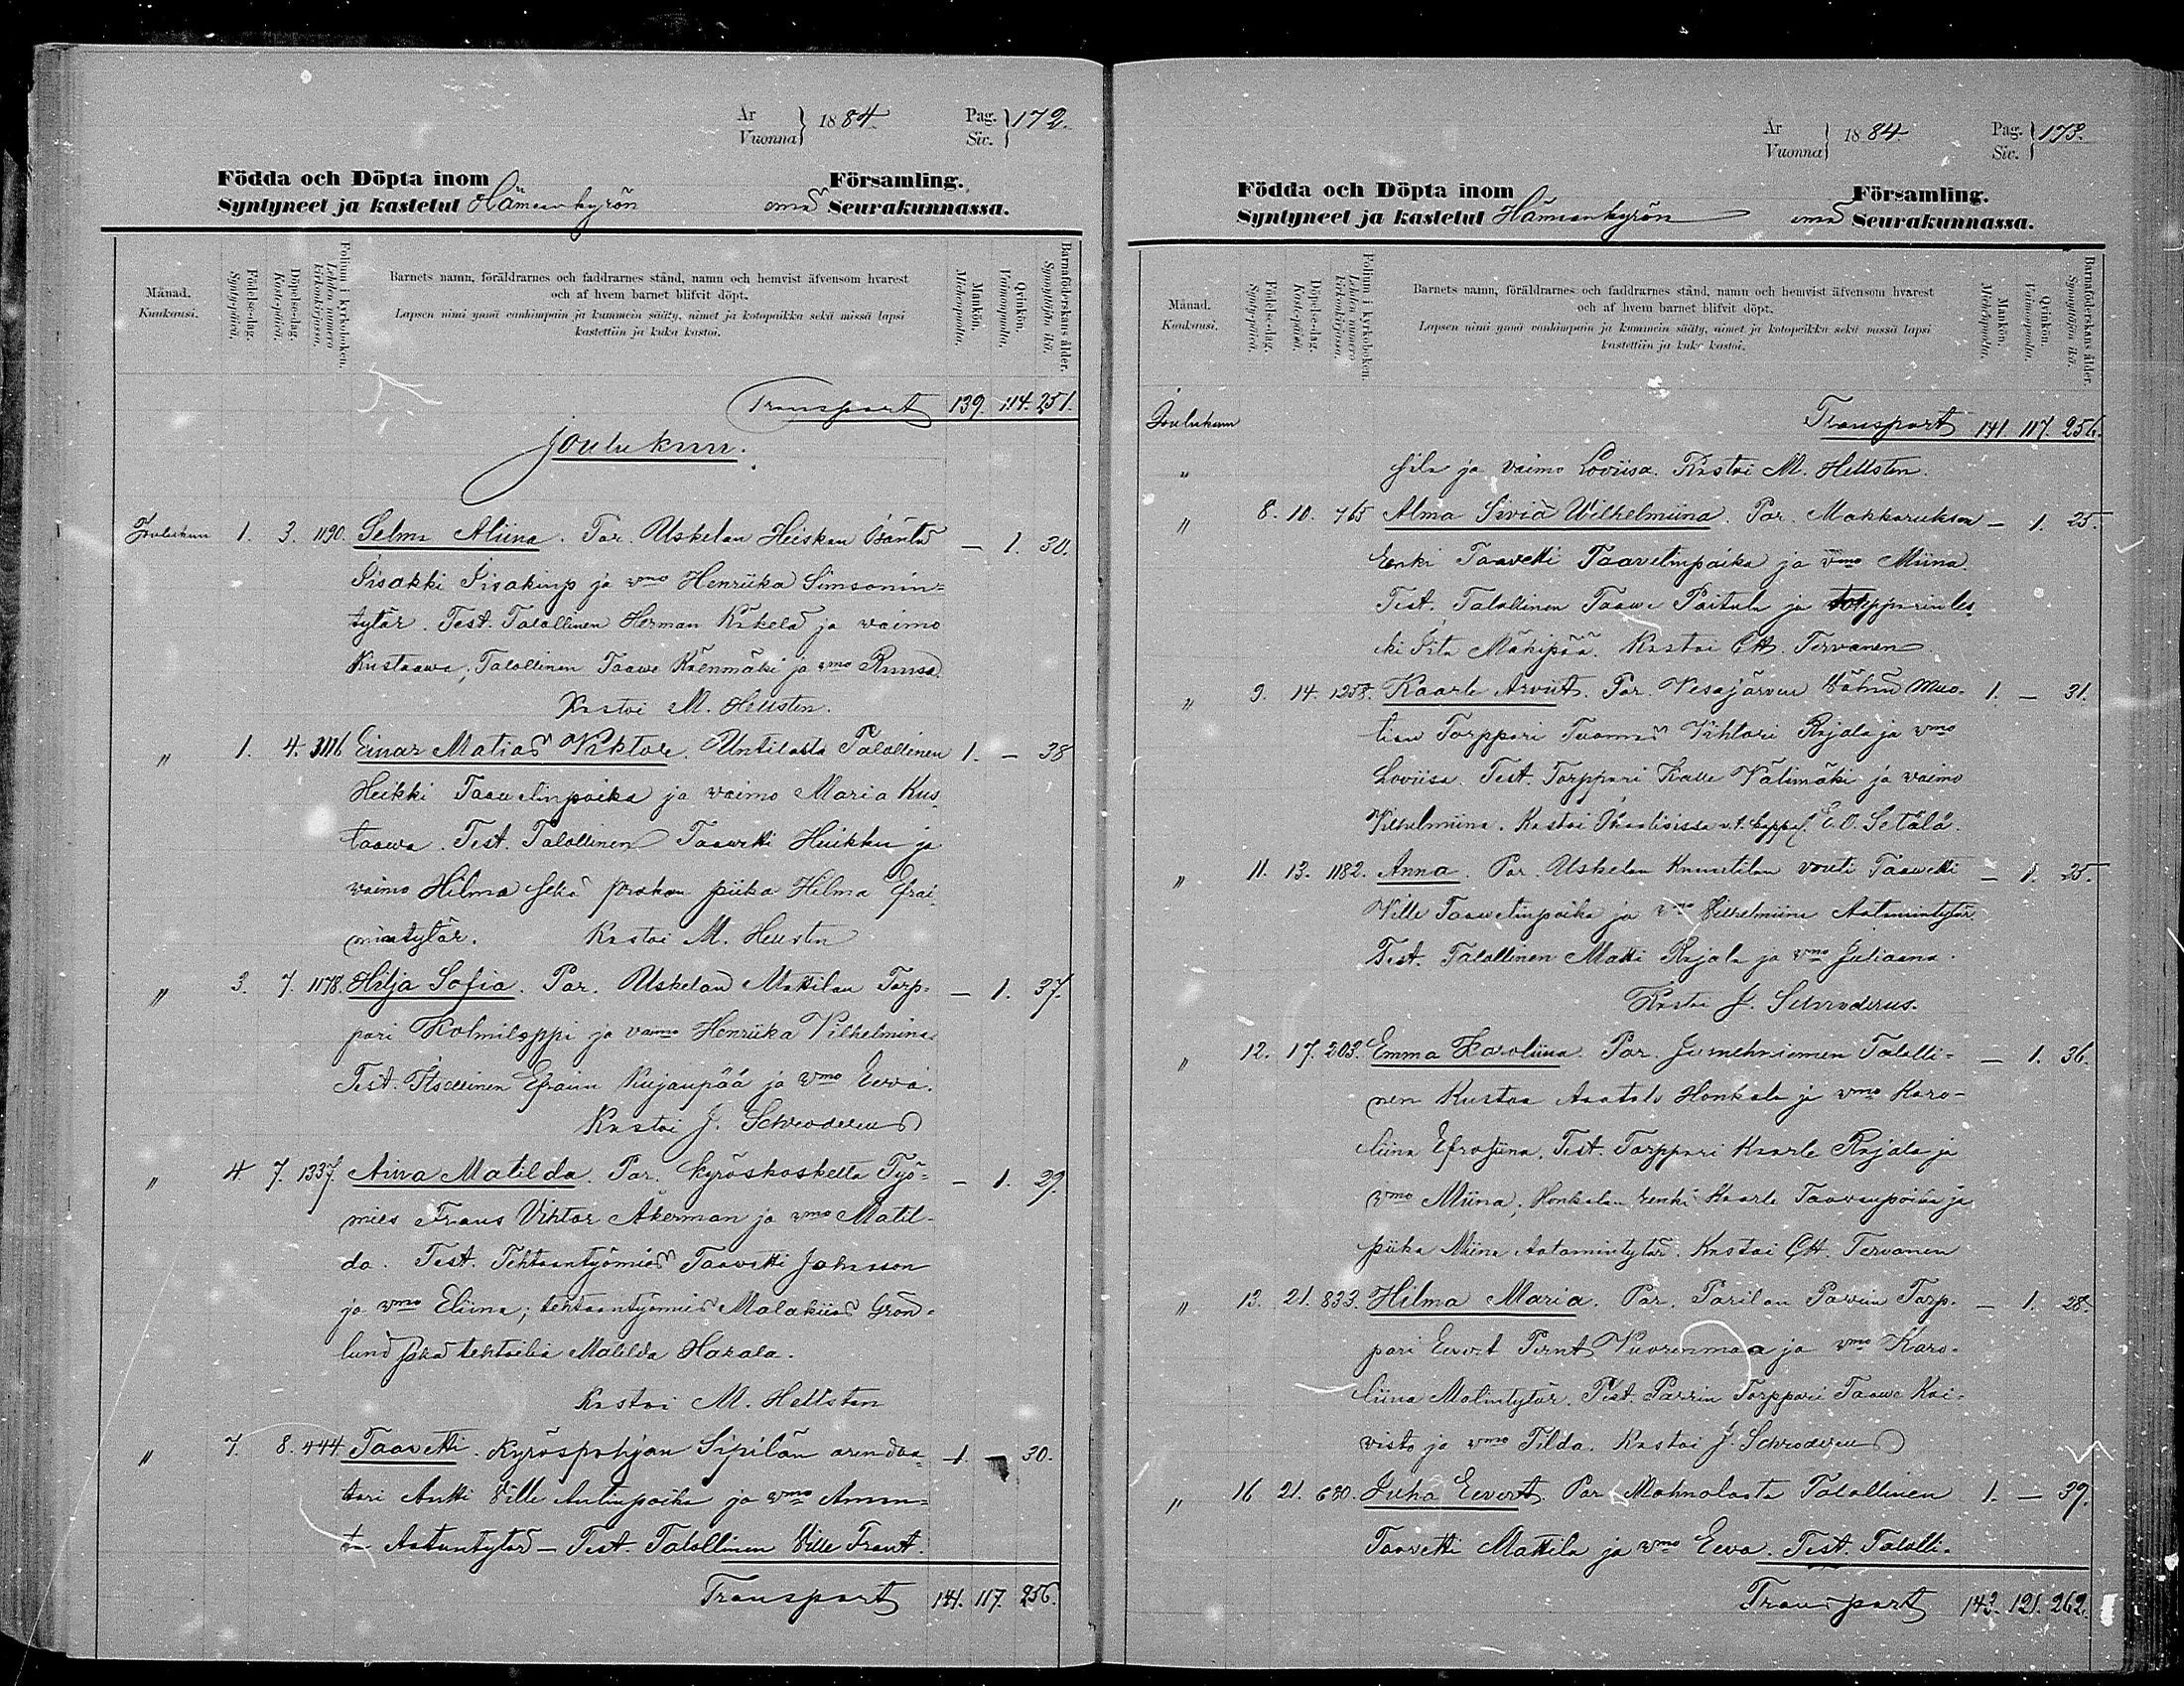 År
Vuonna } 1884. Pag.
Siv. } 172.
Födda och Döpta inom Församling.
Syntyneet ja kastetut Hämeenkyrön emä Seurakunnassa.
Månad.
Kuukausi.
Födelse-dag.
Synty-päivä.
Döpelse-dag.
Kaste-päivä.
Folium i kyrkoboken.
Lehden numero kirkonkirjassa.
Barnets namn, föräldrarnes och faddrarnes stånd, namn och hemvist äfvensom hvarest
och af hvem barnet blifvit döpt.
Lapsen nimi ynnä vanhimpain ja kummein sääty, nimet ja kotopaikka sekä missä lapsi
kastettiin ja kuka kastoi.
Mankön.
Miehenpuolia.
Qvinkön.
Vaimonpuolia.
Barnaföderskans ålder.
Synnyttäjän ikä.
Transport 139. 114. 251.
Joulukuu.
Joulukuu 1. 3. 1190. Selma Aliina. Par. Uskelan Heiskan
Iisakki Iisakinp ja vmo Henriika Simsonin-
tytär. Test. Talollinen Herman Käkelä ja vaimo
Kustaava; Talollinen Taave Käenmäki ja vmo — 1. 30.
Kastoi M. Hellsten.
" 1. 4. Einar Matias Viktor. Untilasta Talollinen 1. — 38
Heikki Taavetinpoika ja vaimo Maria Kus
taava. Test. Talollinen Taavetti Heikku ja
vaimo Hilma sekä piika Hilma Efrai
mintytär. Kastoi M. Hellsten
" 3. 7. 1178. Hilja Sofia. Par. Uskelan Mattilan Torp- — 1. 37.
pari Kolmiloppi ja vaimo Henriika Vilhelmina
Test. Itsellinen Efraim Kujanpää ja vmo Eeva.
Kastoi J. Schroderus
" 4. 7. 1337. Aina Matilda. Par. Kyröskoskelta Työ- — 1. 29.
mies Frans Vihtor Åkerman ja vmo Matil-
da. Test. Tehtaantyömies Taavetti Johnsson
ja vmo Eliina; tehtaantyömies Malakias Grön-
lund sekä Matilda Hakala.
Kastoi M. Hellsten
" 7. 8. 444 Taavetti. Kyröspohjan Sipilän arendaa- 1. — 30.
tori Antti Ville Antinpoika ja vmo Aman-
ta Aatuntytär — Test. Talollinen Ville Frant.
Transport 141. 117. 256.
År
Vuonna } 1884. Pag.
Siv. } 173.
Födda och Döpta inom Församling.
Syntyneet ja kastetut Hämeenkyrön emä Seurakunnassa.
Månad.
Kuukausi.
Födelse-dag.
Synty-päivä.
Döpelse-dag.
Kaste-päivä.
Folium i kyrkoboken.
Lehden numero kirkonkirjassa.
Barnets namn, föräldrarnes och faddrarnes stånd, namn och hemvist äfvensom hvarest
och af hvem barnet blifvit döpt.
Lapsen nimi ynnä vanhimpain ja kummein sääty, nimet ja kotopaikka sekä missä lapsi
kastettiin ja kuka kastoi.
Mankön.
Miehenpuolia.
Qvinkön.
Vaimonpuolia.
Barnaföderskans ålder.
Synnyttäjän ikä.
Joulukuu Transport 141. 117. 256.
" ja vaimo Loviisa. Kastoi M. Hellsten.
" 8. 10. 765 Alma Siviä Wilhelmiina. Par. Makkaruksen — 1. 25.
Renki Taavetti Taavetinpoika ja vmo Miina.
Test. Talollinen Taave Paitula ja torpparinles
ki Iita Mäkipää. Kastoi Tervanen
" 9. 14. 1258. Kaarle Arviit. Par. Vesajärven Vähä Muo- 1. — 31.
tian Torppari Tuomas Vihtori Rajala ja vmo
Loviisa. Test. Torppari Kalle Välimäki ja vaimo
Vilhelmiina. Kastoi v.t. kappal. E. O. Setälä.
" 11. 13. 1182. Anna. Par. Uskelan Knuutilan vouti Taavetti — 1. 25.
Ville Taavetinpoika ja vmo Vilhelmiina Aatamintytär
Test. Talollinen Matti Rajala ja vmo Juliaana.
Kastoi J. Schroderus.
" 12. 17. 203. Emma Karoliina. Par. Jumehniemen Talolli- — 1. 36.
nen Kustaa Anatolo Honkala ja vmo Karo-
liina Efrosiina. Test. Torppari Kaarle Rajala ja
vmo Miina; Honkalan renki Kaarle Taavenpoika ja
piika Miina Aatamintytär. Kastoi Tervanen
" 13. 21. 833. Hilma Maria. Par. Parilan Parviin Torp- — 1. 28.
pari Eevert Pernt Vuorenmaa ja vmo Karo-
liina Malintytär. Test. Parrin Torppari Taave Koi-
visto ja vmo Tilda. Kastoi J. Schroderus
" 16 21. 680. Juha Eevert. Par. Mahnalasta Talollinen 1. — 39.
Taavetti Mattila ja vmo Eeva. Test. Talolli-
Transport 143. 121. 262.